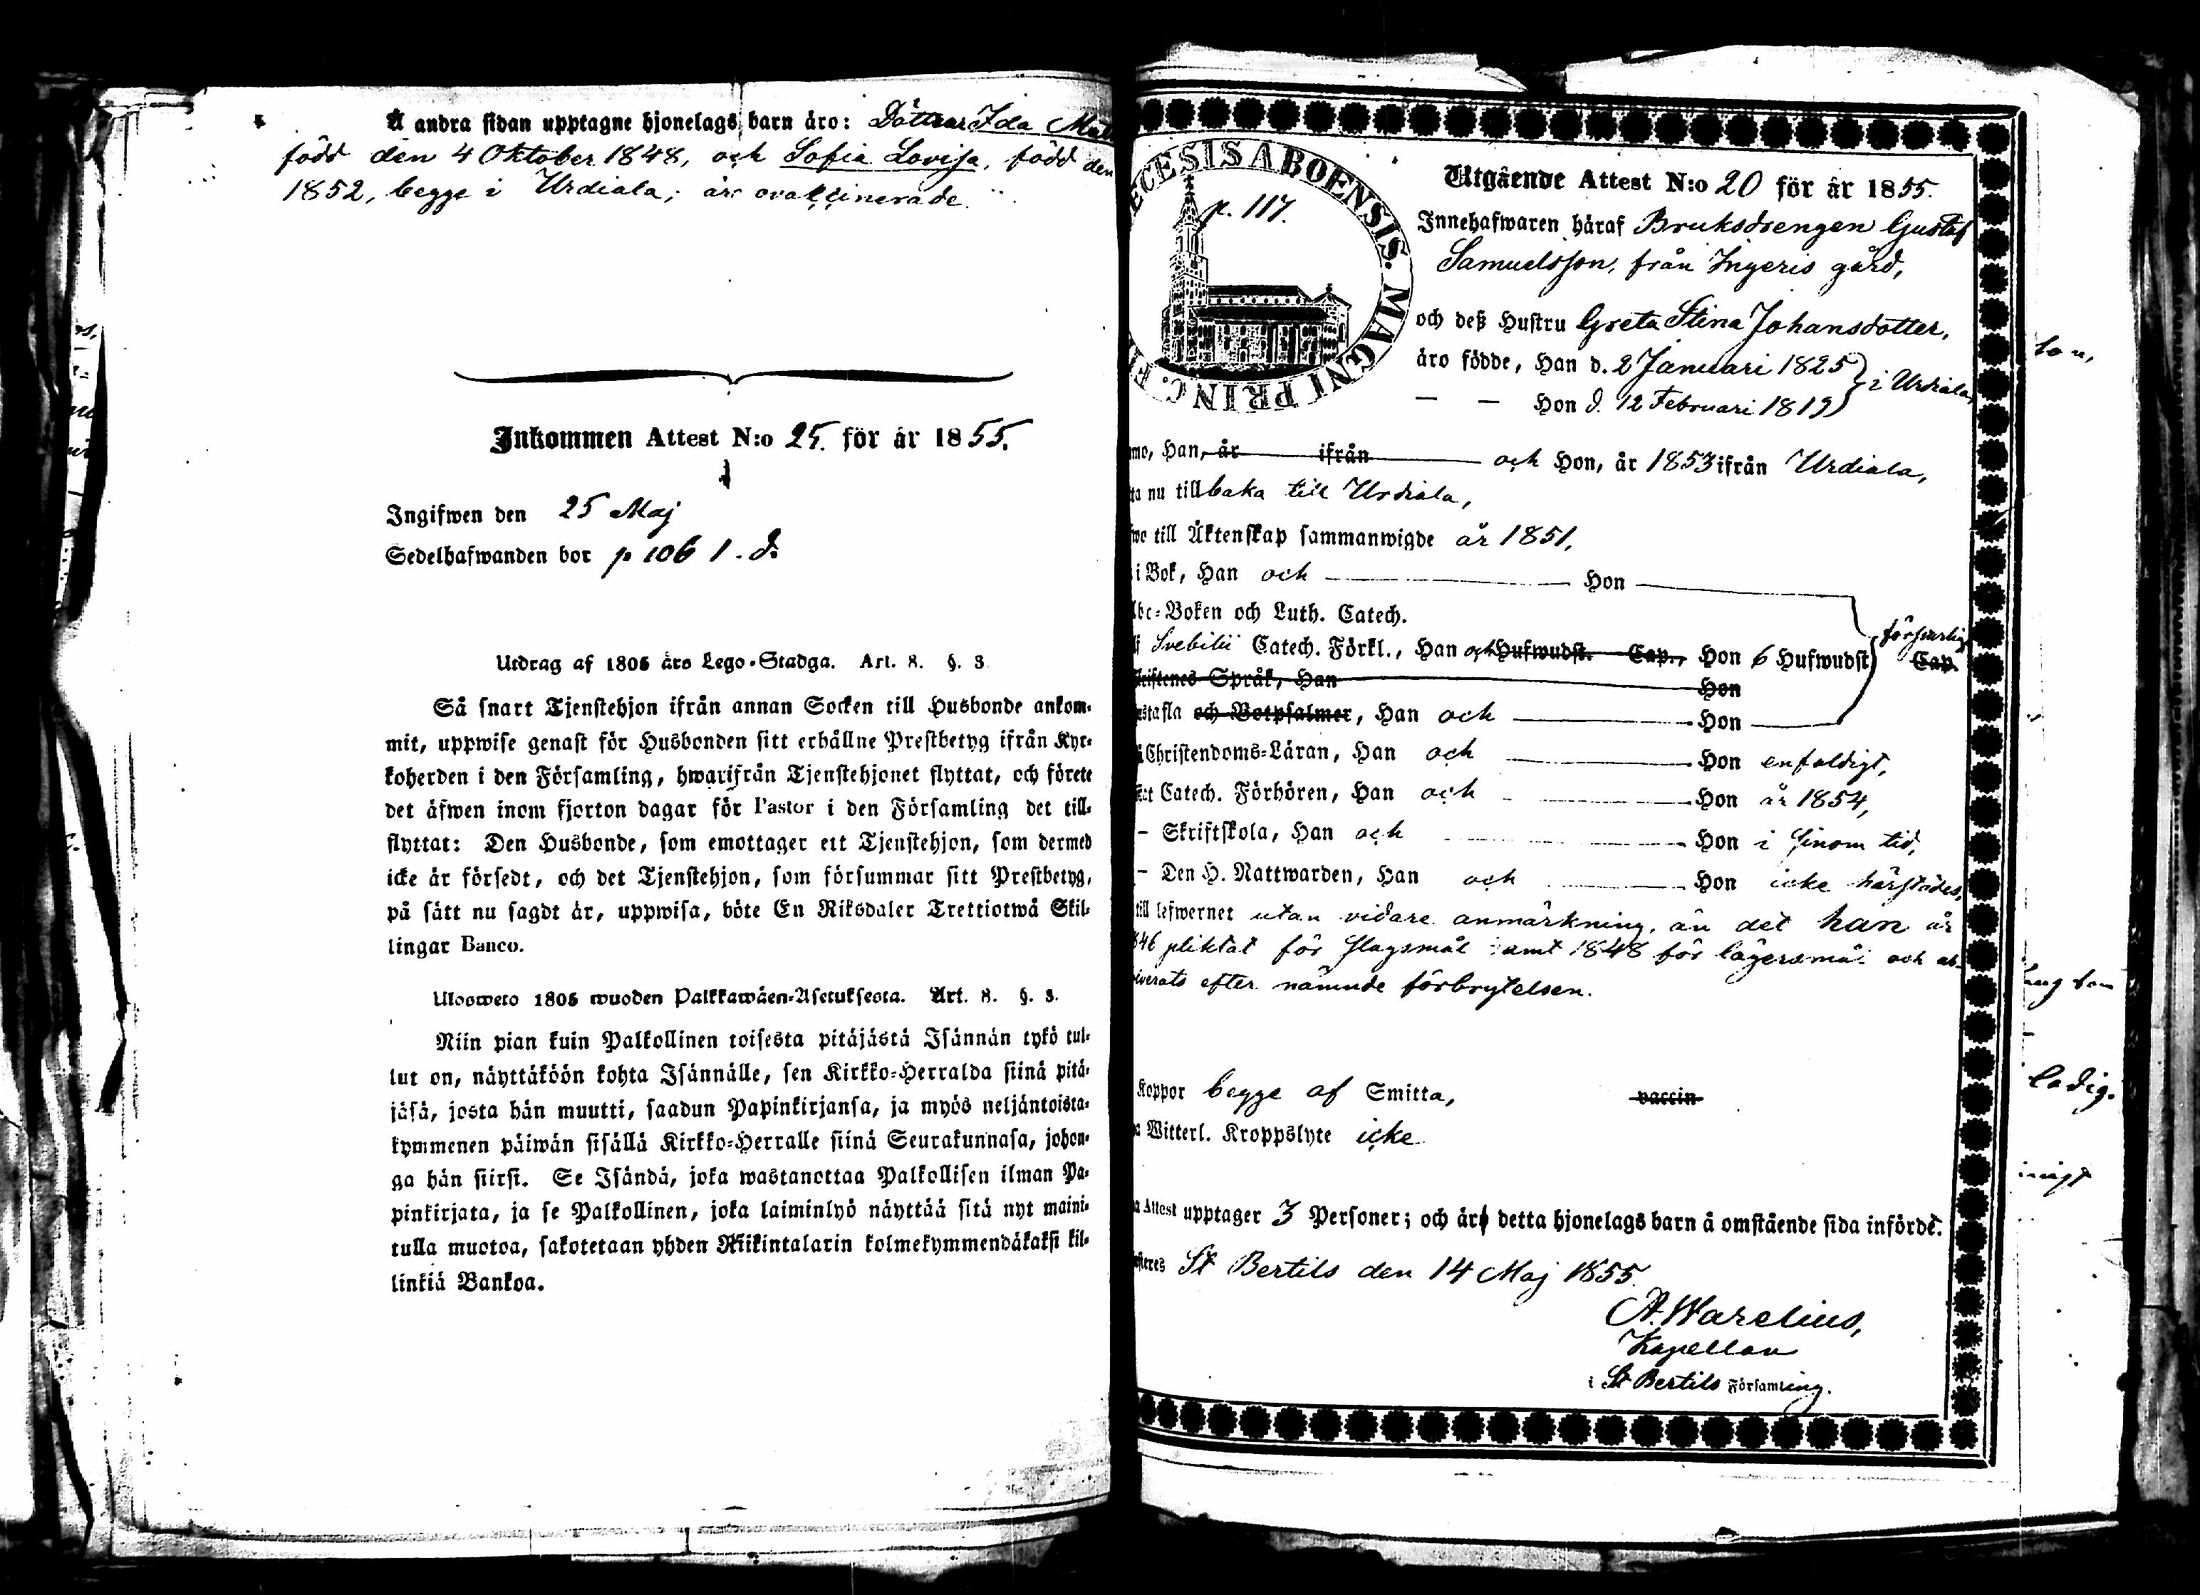 Å andra sidan upptagne hjonelags barn äro: Döttrar Ida
född den 4 Oktober 1848, och Sofia Lovisa, född den
1852, begge i Urdiala; är ovaccinerade.
Inkommen Attest N:o 25. för år 1855.
Ingifwen den 25 Maj
Sedelhafwanden bor p 106 1. d.
Utdrag af 1805 års Lego-Stadga. Art. 8. §. 3
Så snart Tjenstehjon ifrån annan Socken till Husbonde ankom-
mit, uppwise genast för Husbonden sitt erhållne Prestbetyg ifrån Kyr-
koherden i den Församling, hwarifrån Tjenstehjonet flyttat, och förete
det äfwen inom fjorton dagar för Pastor i den Församling det till-
flyttat: Den Husbonde, som emottager ett Tjenstehjon, som dermed
icke är försedt, och det Tjenstehjon, som försummar sitt Prestbetyg,
på sätt nu sagdt är, uppwisa, böte En Riksdaler Trettiotwå Skil-
lingar Banco.
Ulosweto 1805 wuoden Palkkawäen-Asetuksesta. Art. 8. §. 3.
Niin pian kuin Palkollinen toisesta pitäjästä Isännän tykö tul-
lut on, näyttäköön kohta Isännälle, sen Kirkko-Herralda siinä pitä-
jäsä, josta hän muutti, saadun Papinkirjansa, ja myös neljäntoista-
kymmenen päiwän sisällä Kirkko-Herralle siinä Seurakunnasa, johon-
ga hän siirsi. Se Isändä, joka wastanottaa Palkollisen ilman Pa-
pinkirjata, ja se Palkollinen, joka laiminlyö näyttää sitä nyt maini-
tulla muotoa, sakotetaan yhden Riikintalarin kolmekymmendäkaksi kil-
linkiä Bankoa.
ECESIS ABOENSIS. MAGNI PRINC. FI
p. 117.
Utgående Attest N:o 20 för år 1855.
Innehafwaren häraf Bruksdrengen Gustaf
Samuelsson, från Ingeris gård,
och deß Hustru Greta Stina Johansdotter,
äro födde, Han d. 2 Januari 1825 } i Urdiala,
— — Hon d. 12 Februari 1819
mo, Han, år ifrån och Hon, år 1853 ifrån Urdiala,
ta nu tillbaka till Urdiala,
wo till Äktenskap sammanwigde år 1851,
i Bok, Han och Hon
bc-Boken och Luth. Catech.
Svebilii Catech. Förkl., Han och Hufwudst. Cap., Hon 6 Hufwudst. Cap. försvarligt
riftenes Språk, Han Hon
stafla och Botpsalmer, Han och Hon
Christendoms-Läran, Han och Hon enfaldigt,
Catech. Förhören, Han och Hon år 1854,
– Skriftskola, Han och Hon i sinom tid,
– Den H. Nattwarden, Han och Hon icke härstädes,
till lefwernet utan vidare anmärkning, än det han år
46 pliktat för slagsmål samt 1848 för lägersmål och ab-
efter nämnde förbrytelsen.
Koppor begge af Smitta, vaccin
a Witterl. Kroppslyte icke
Attest upptager 3 Personer; och äro detta hjonelags barn å omstående sida införde.
St Bertils den 14 Maj 1855
A. Warelius,
Kapellan
i St Bertils Församling.